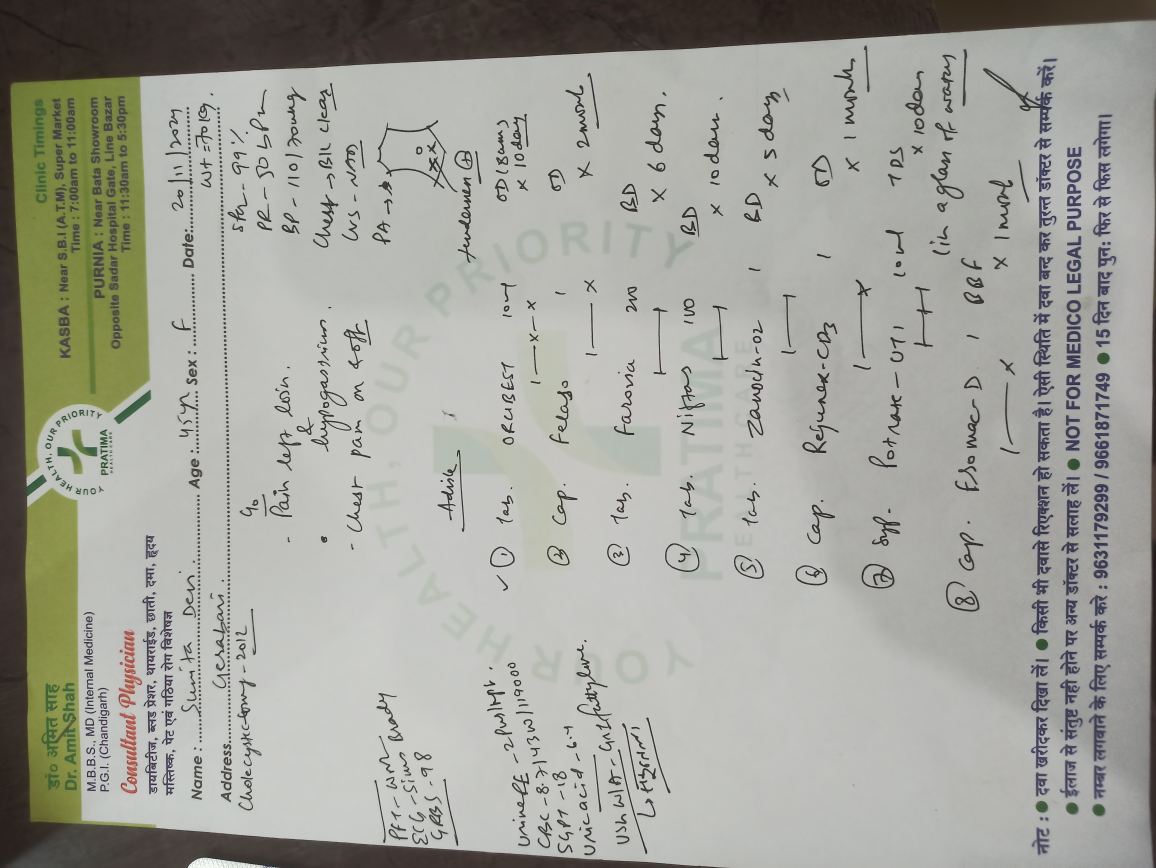 डॉ० अमित साह
Dr. Amit Shah
M.B.B.S., MD (Internal Medicine)
P.G.I. (Chandigarh)
Consultant Physician
डायबिटीज, ब्लड प्रेशर, थायराईड, छाती, दमा, हृदय
मस्तिष्क, पेट एवं गठिया रोग विशेषज्ञ
YOUR HEALTH, OUR PRIORITY
PRATIMA
Clinic Timings
KASBA : Near S.B.I (A.T.M), Super Market
Time : 7:00am to 11:00am
PURNIA : Near Bata Showroom
Opposite Sadar Hospital Gate, Line Bazar
Time : 11:30am to 5:30pm
Name : Sunita Devi Age : 45yr Sex : F Date: 20/11/2024
Address Gerabari. Wt = 70kg.
Cholecystectomy - 2012
c/o
- Pain left loin.
&
hypogastrium.
- Chest pain on & off
SPO2 - 99%
PR - 50 bpm
BP - 110/70mmHg
Chest → B/L clear
CVS - NAD
PA →
tenderness +
ECG - Sinus Brady
GRBS - 98
Urine RE -
CBC - 8.7/
SGPT - 18
Uric acid - 6.4
USG W/A - Gr I fatty liver.
Advise
① Tab. 10mg OD (8am)
1—x—x x 10day
② Cap. 1 OD
1—x x 2month
③ Tab. Farovia 200 BD
x 6 days.
④ Tab. 100 BD
x 10days.
⑤ Tab. Zanocin-OZ 1 BD
x 5 days
⑥ Cap. Rejunex-CD3 1 OD
x 1 month
⑦ Syp. 10ml TDS
x 10days
(in a glass of water)
⑧ Cap. Esomac-D 1 BBF
1—x x 1 month
YOUR HEALTH, OUR PRIORITY
PRATIMA
HEALTHCARE
नोट : ● दवा खरीदकर दिखा लें। ● किसी भी दवासे रिएक्शन हो सकता है। ऐसी स्थिति में दवा बन्द कर तुरन्त डॉक्टर से सम्पर्क करें।
● ईलाज से संतुष्ट नही होने पर अन्य डॉक्टर से सलाह लें। ● NOT FOR MEDICO LEGAL PURPOSE
● नम्बर लगवाने के लिए सम्पर्क करे : 9631179299 / 9661871749 ● 15 दिन बाद पुन: फिर से फिस लगेगा।